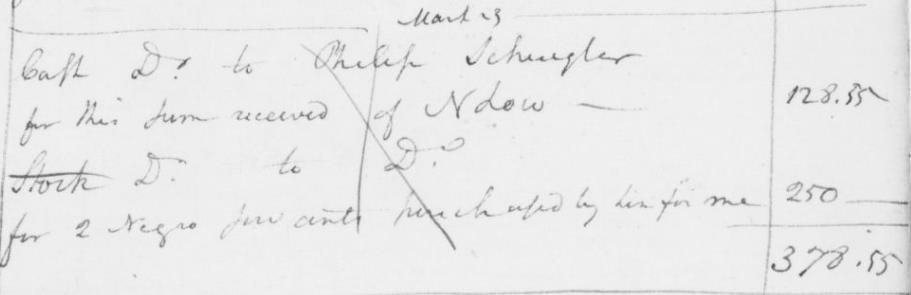 March 23
Cash Dr. to Philip Schuyler
for this sum received of N Low — 128.55
Stock Dr. to Do
for 2 Negro servants purchased by him for me 250
378.55